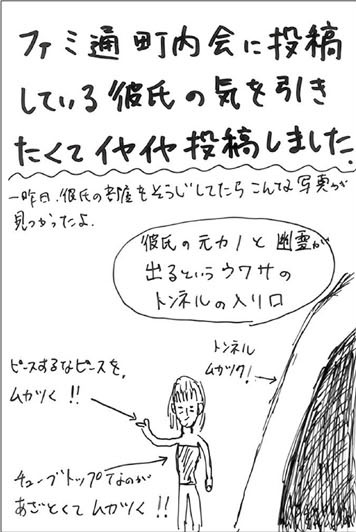 ファミ通町内会に投稿
している彼氏の気を引き
たくてイヤイヤ投稿しました。
一昨日、彼氏の部屋をそうじしてたらこんな写真が
見つかったよ。
彼氏の元カノと幽霊が
出るというウワサの
トンネルの入り口
トンネル
ムカツク!
ピースするなピースを。
ムカツく!!
チューブトップてなのが
あざとくてムカツく!!